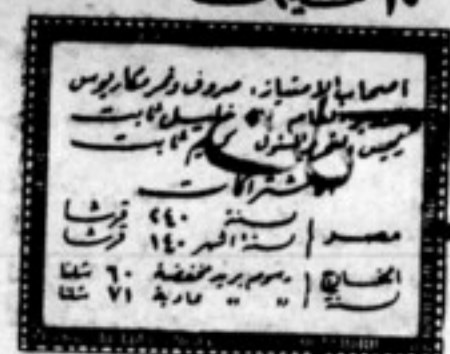 اصحاب الامتياز: صروف ونمر ومكاريوس
خليل ثابت
رئيس التحرير المسئول كريم ثابت
الاشتراكات
مصر سنة ٢٤٠ قرشا
ستة اشهر ١٤٠ قرشا
الخارج رسوم بريد مخفضة ٦٠ شلنا
سنة " " عادية ٧١ شلنا